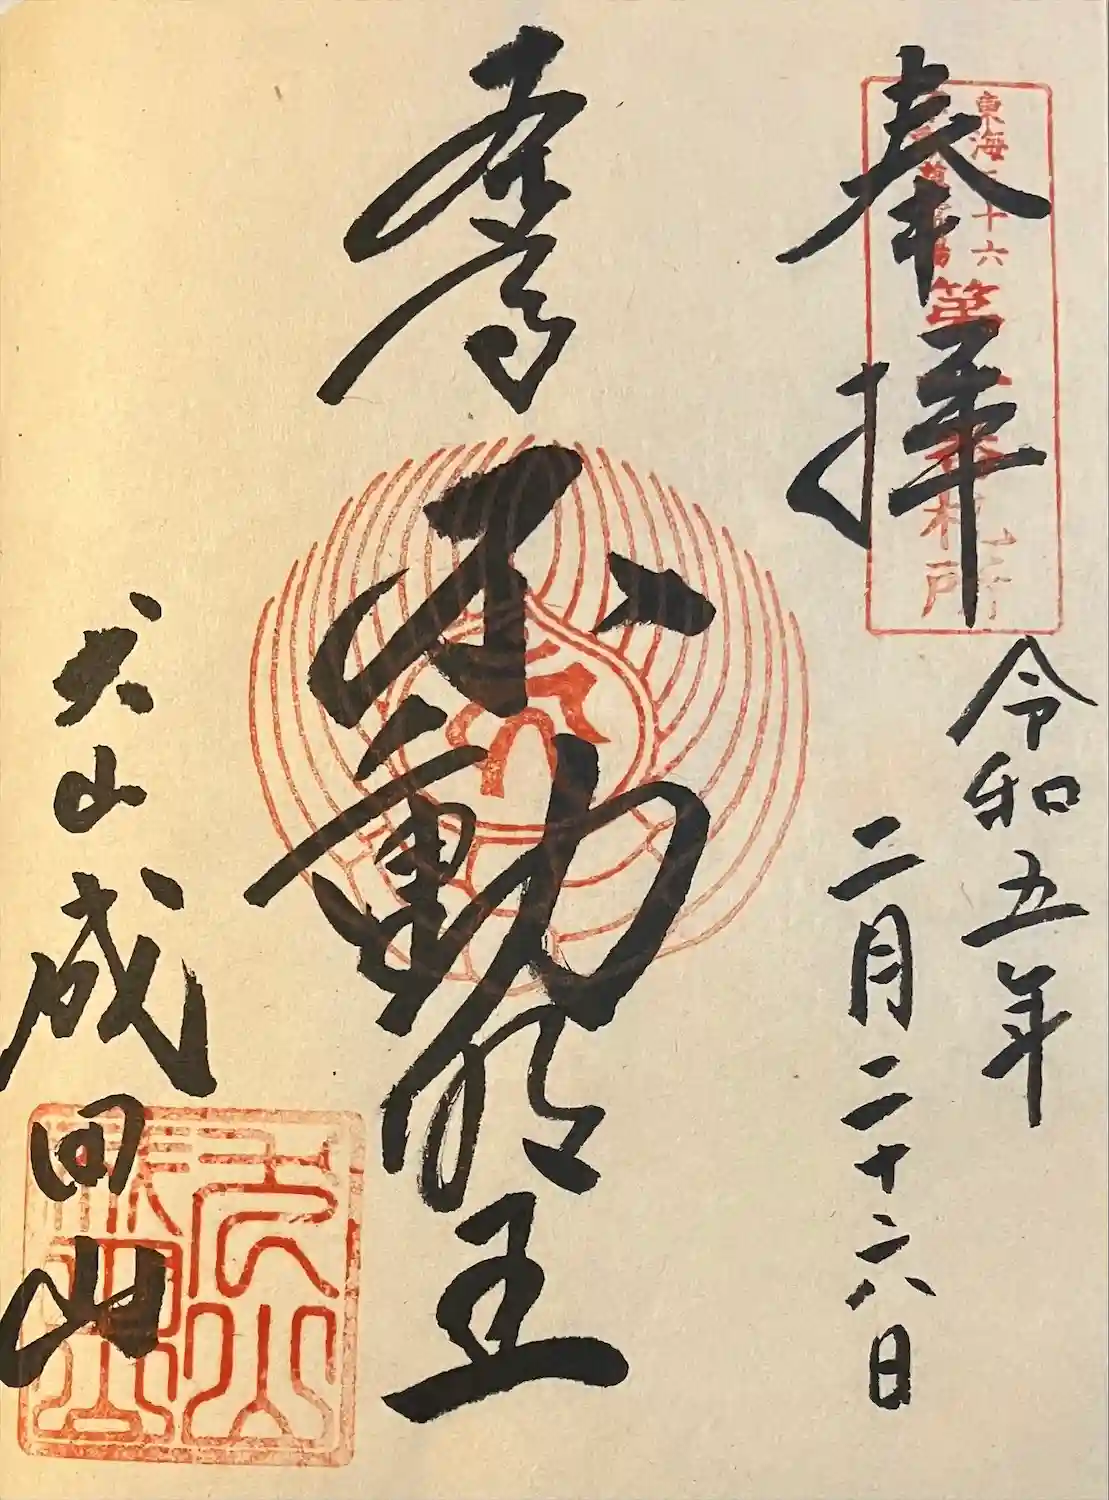 奉拝
東海三十六
不動尊霊場
第
番札所
令和五年
二月二十六日
不動明王
犬山成田山